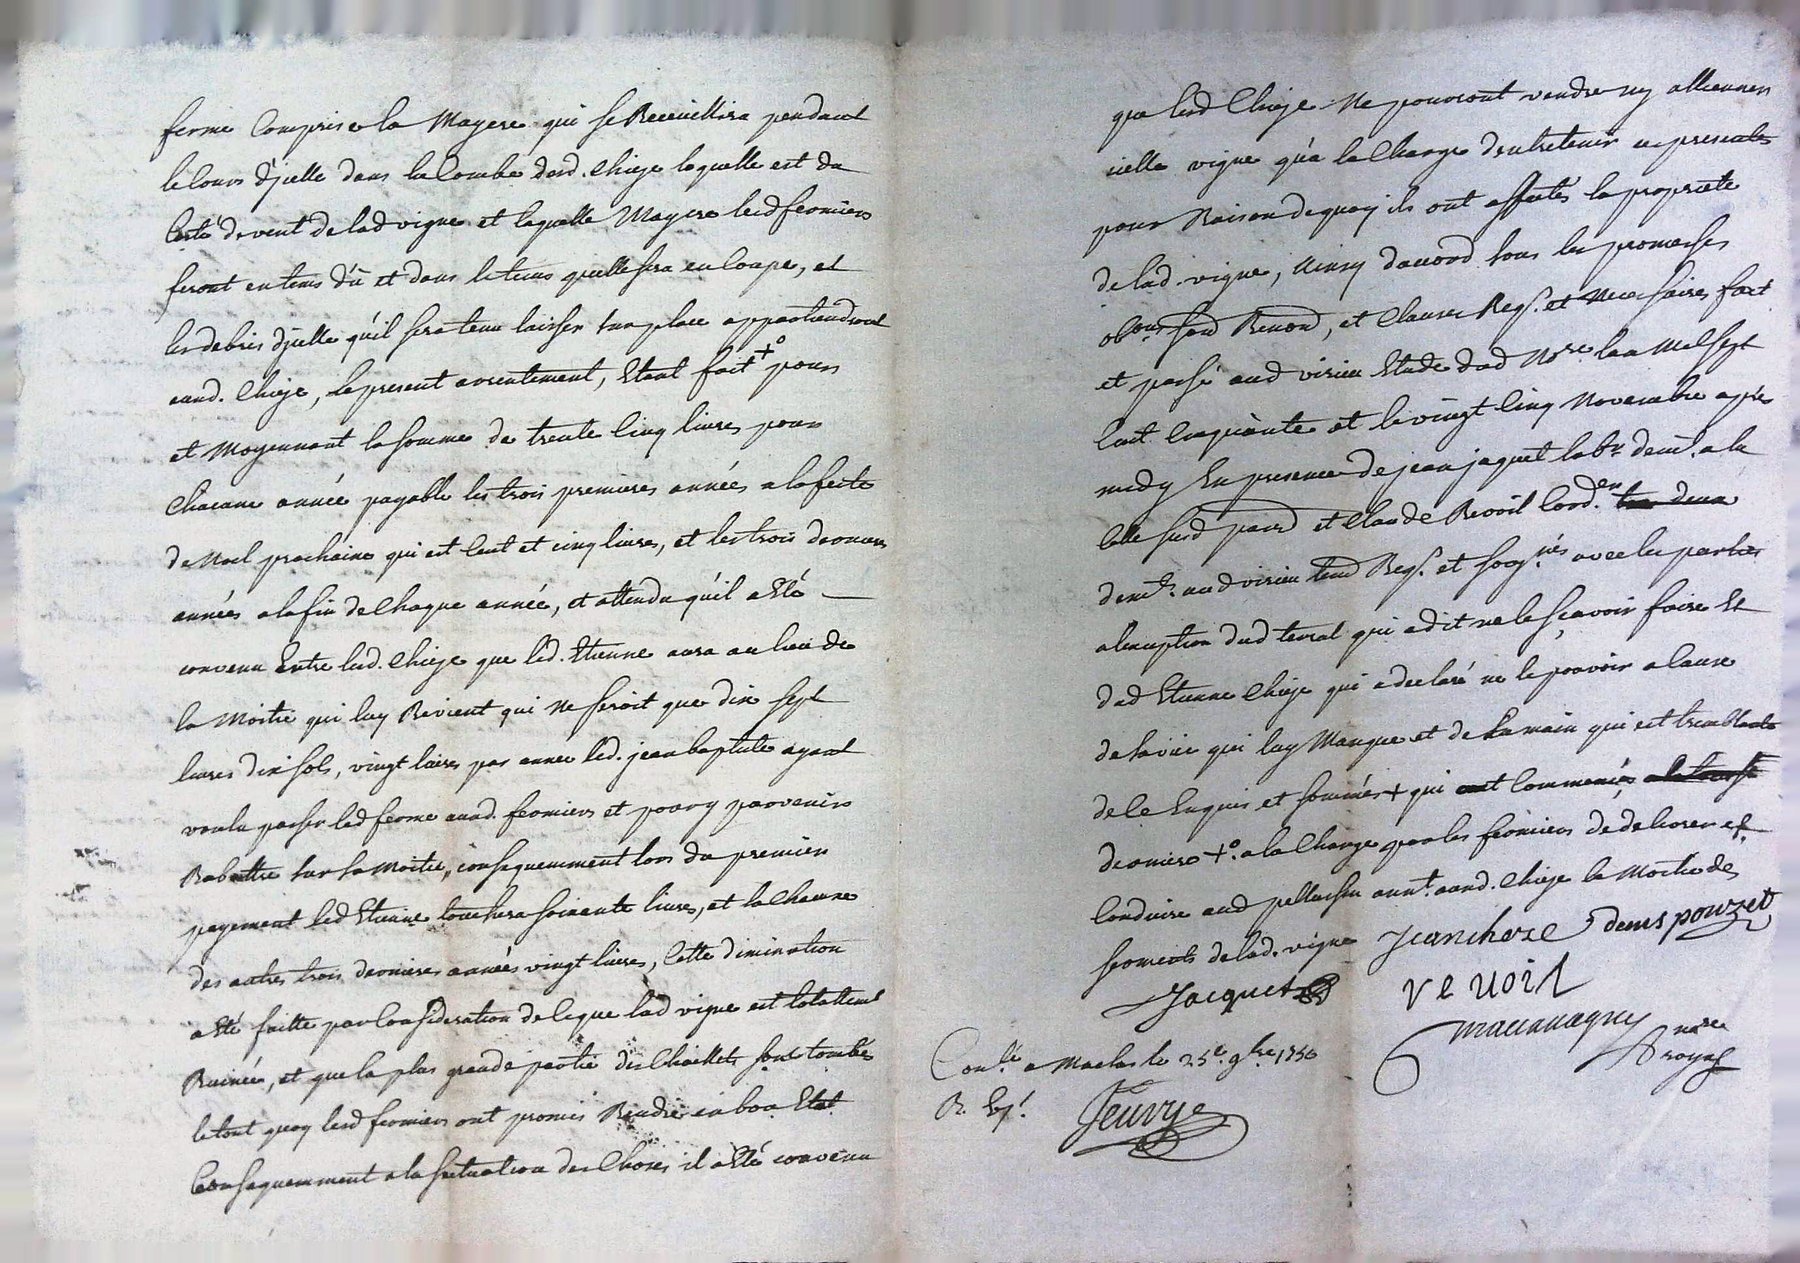 ferme Comprise la Mayere qui se Recueillira pendant
le Cours d'jcelle dans la Combe desd. Chieze laquelle est du
Costé de vent de lad vigne et laquelle Mayere lesd fermiers
feront en tems d'û et dans le tems quelle sera en Coupe, et
les debris d'jcelle qu'il sera tenu laisser sur place appartiendront
auxd. Chieze, le present arrentement, Etant fait +° pour
et Moyennant la somme de trente Cinq livres pour
Chacune année payable les trois premieres années a la feste
de Noel prochaine qui est Cent et cinq livres, et les trois dernieres
années a la fin de Chaque année, et attendu qu'il a Eté
convenu Entre lesd. Chieze que led. Etienne aura au lieu de
la Moitié qui luy Revient qui ne seroit que dix sept
livres dix sols, vingt livres par année led. jean baptiste ayant
voulu passer lad ferme auxd. fermiers et pour y parvenir
Rabattre sur sa Moitié, consequemment lors du premier
payement led Etienne touchera soixante livres, et la Chacune
des autres trois dernieres années vingt livres, Cette diminution
a Eté faitte par Consideration de ce que lad vigne est totallement
Ruinée, et que la plus grande partie des Chaillets sont tombés
le tout quoy lesd fermiers ont promis Rendre en bon Etat
Consequemment a la situation des Choses il a Eté convenu
que lesd Chieze Ne pourront vendre ny alliener
icelle vigne qu'a la Charge d'entretenir ces presentes
pour Raison de quoy ils ont affectés la proprieté
de lad. vigne, Ainsy d'accord sous les promesses
obons. serd Renond, et Clauses Reqs. et Necessaires fait
et passé aud virieu Etude dud Nore lan Mil sept
Cent Cinquante et le vingt Cinq Novembre après
midy En presence de jean jaquet labr. demt. a la
Celle surd parr et Claude Revoil Cord.en
demts. aud virieu tesd Reqs. et soussignés avec les parties
a l'exception dud qui a dit ne le sçavoir faire Et
dud Etienne Chieze qui a declaré ne le pouvoir a Cause
de la vüe qui luy Manque et de sa main qui est tremblante
de Ce Enquis et sommés + qui ont Commencés
derniere +° a la Charge par les fermiers de deliverer et
Conduire aud pellussin annt. auxd. Chieze la Moitié des
serments de lad. vigne Jean chieze denis pouzet
Jacquet revoil
nore royal
Conlé. a Maclas le 25e. 9bre 1750
R.